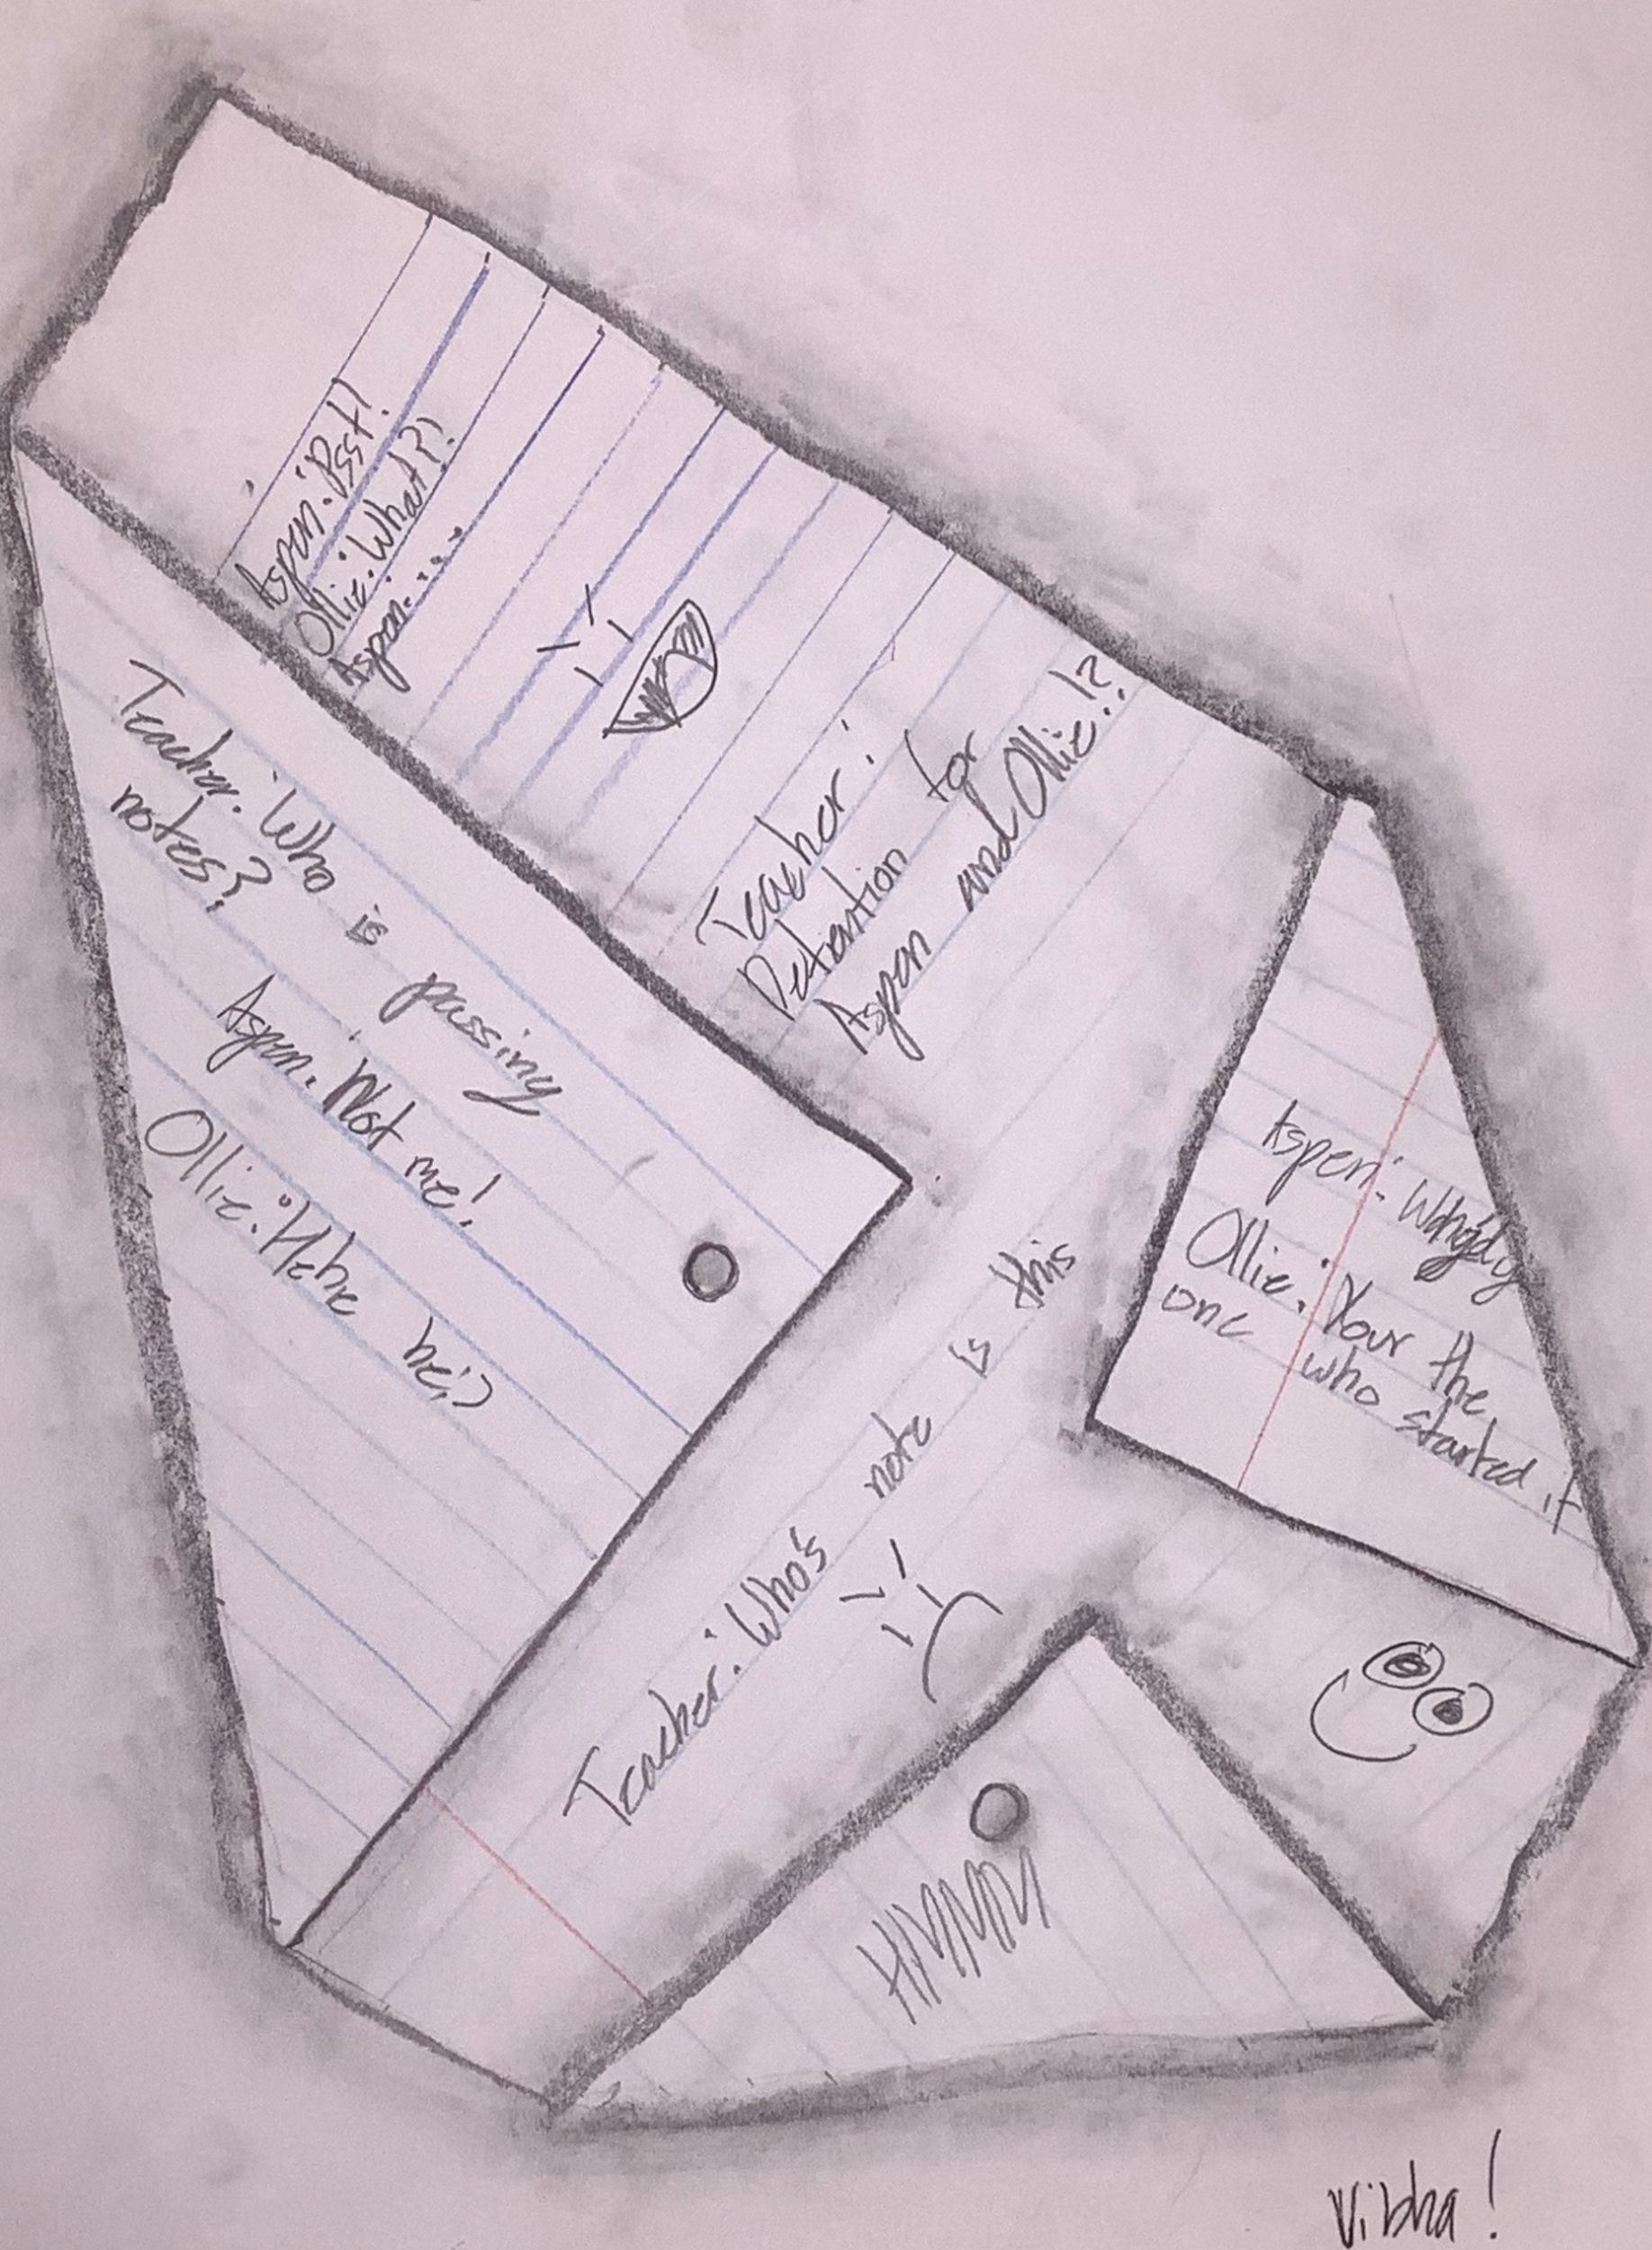 Aspen: Psst!
Ollie: What?!
Aspen: ...
Teacher: Who is passing
notes?
Aspen: Not me!
Ollie: Hehe he:)
Teacher:
Detention for
Aspen and Ollie!?
Teacher: Who's note is this
Aspen:
Ollie: Your the
one who started it
HMMM
Vibha!